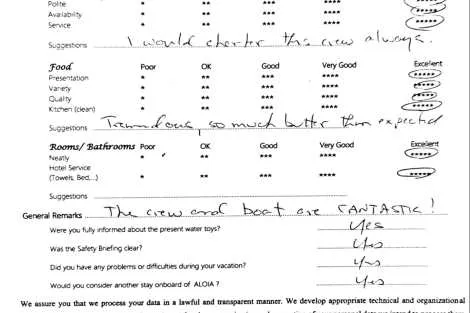 Polite * ** *** **** *****
Availability * ** *** **** *****
Service * ** *** **** *****
Suggestions I would charter this crew always.
Food Poor OK Good Very Good Excellent
Presentation * ** *** **** *****
Variety * ** *** **** *****
Quality * ** *** **** *****
Kitchen (clean) * ** *** **** *****
Suggestions Tremendous, so much better than expected
Rooms/ Bathrooms Poor OK Good Very Good Excellent
Neatly * ** *** **** *****
Hotel Service
(Towels, Bed,...) * ** *** **** *****
Suggestions
General Remarks The crew and boat are FANTASTIC!
Were you fully informed about the present water toys? Yes
Was the Safety Briefing clear? Yes
Did you have any problems or difficulties during your vacation? Yes
Would you consider another stay onboard of ALOIA ? Yes
We assure you that we process your data in a lawful and transparent manner. We develop appropriate technical and organizational